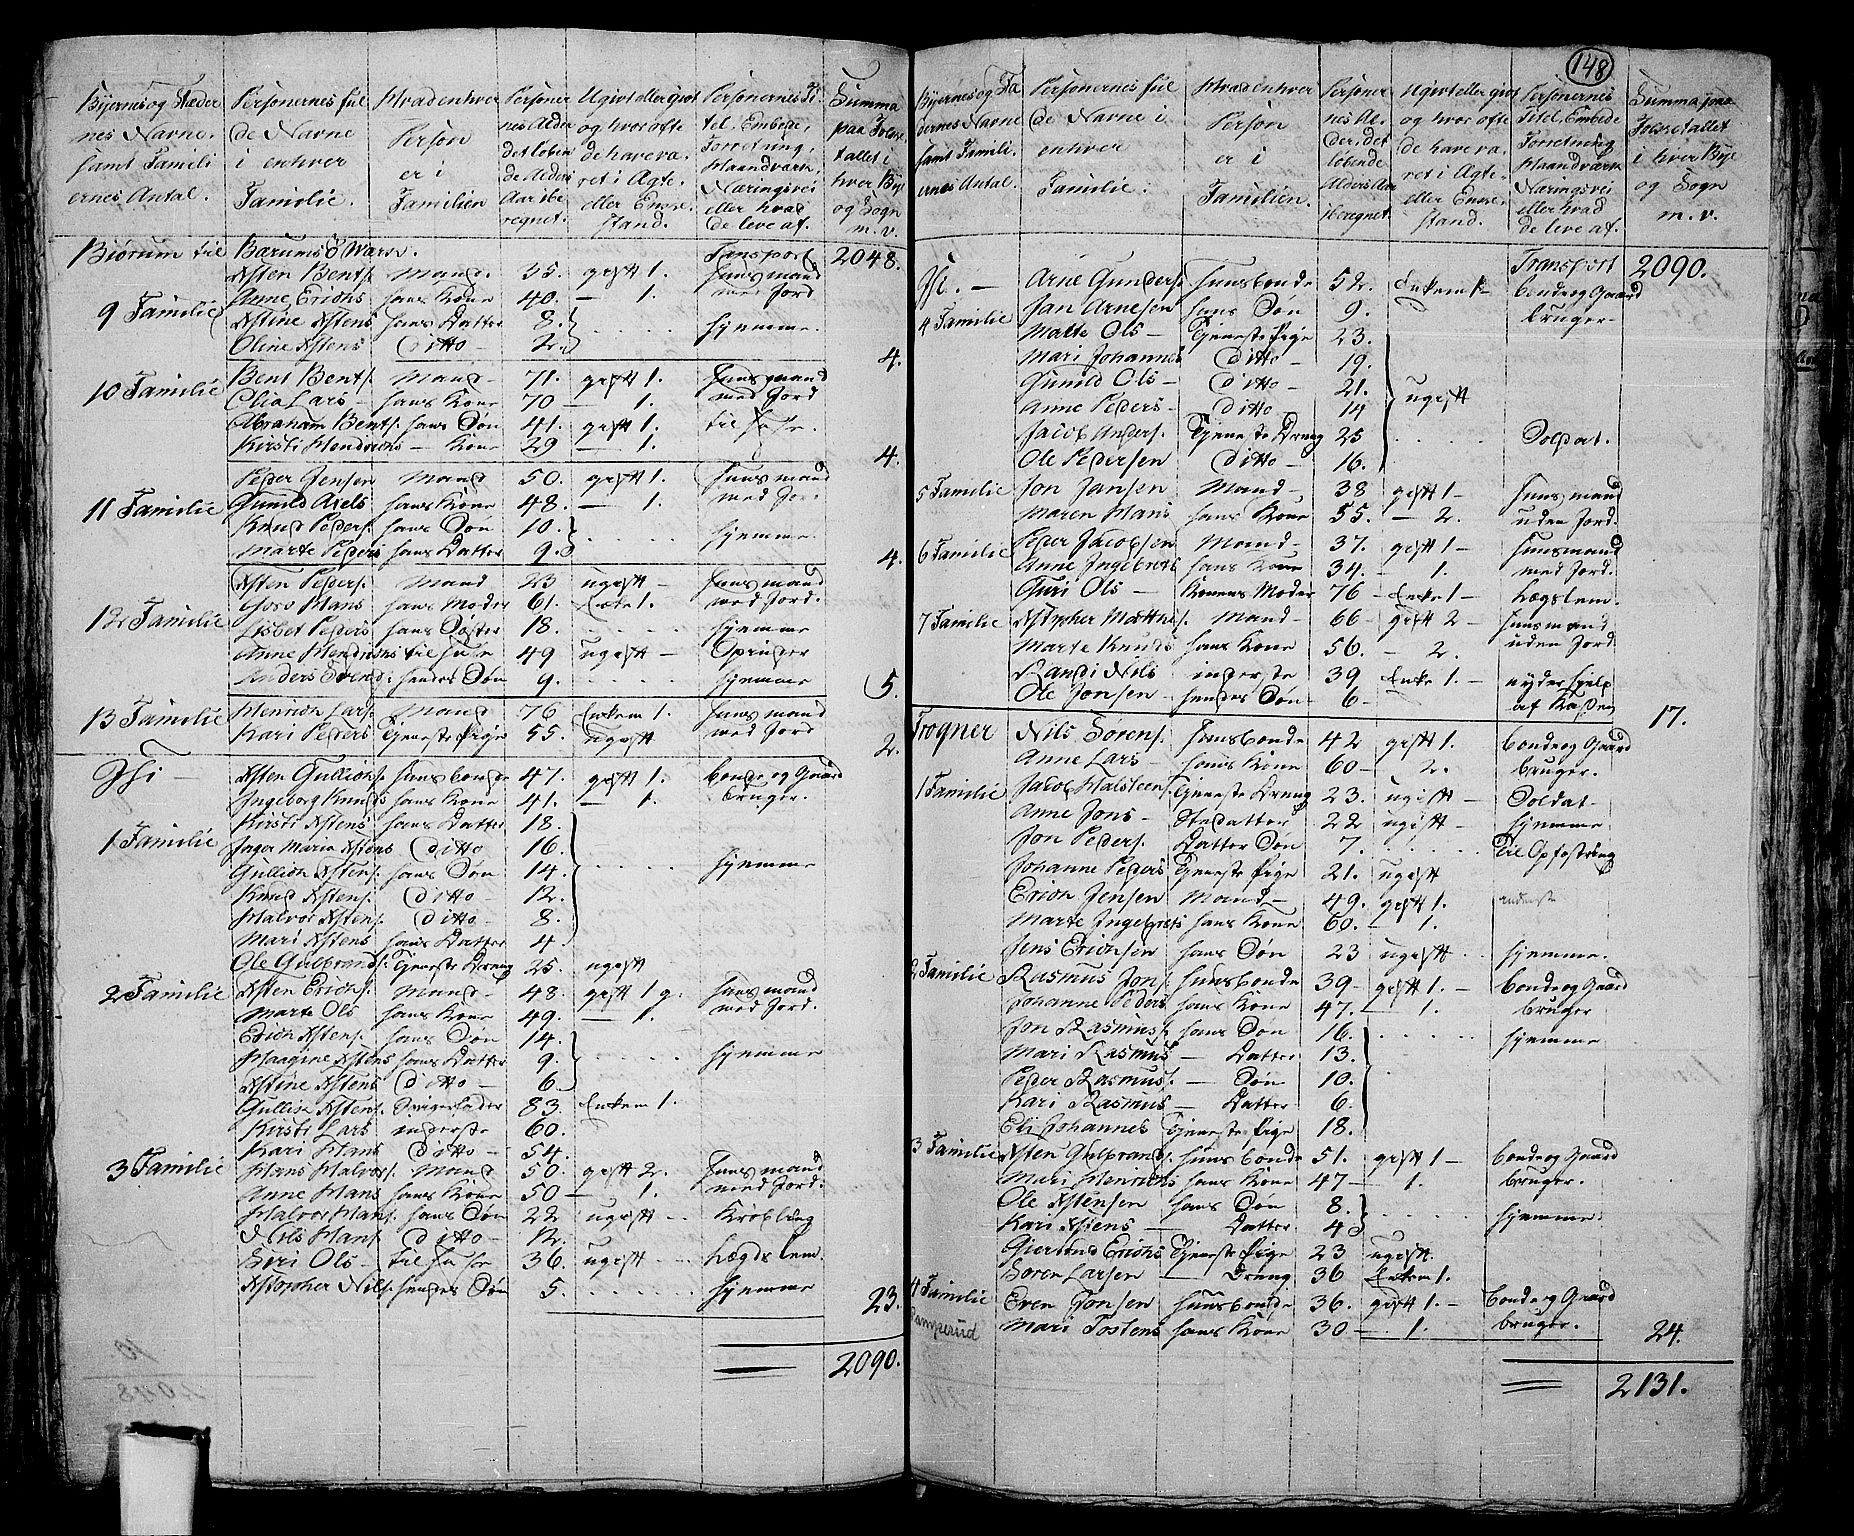 Byernes og Stæder
nes Navne.
samt Famili
ernes Antal.
Personernes ful
de Navne
i enhver
Familie.
Hvad enhver
Person
er i
Familien
Personer
nes Alder
det løben
de Alders
Aar ibe
regnet.
Ugivt eller givt
og hvor ofte
de have va.
ret i Ægte.
eller Enke.
stand.
Personernes Ti
tel, Embede,
Forretning,
Haandværk,
Næringsvei
eller hvad
de leve af.
Summa
paa Folke
tallet i
hver Bye
og Sogn
m. v.
Biørum til Barums Wærk. Transport 2048.
Asten Bents. Mand 35. gift 1. Huusmand
9 Familie Anne Erichs hans Kone 40. — 1. med Jord
Astine Astens hans Datter 8.
Oline Astens Ditto 2. hjemme. 4.
10 Familie Bent Bents. Mand 71. gift 1. Huusmand
Olia Lars hans Kone 70 — 1. med Jord
Abraham Bents. hans Søn 41. gift 1. til huse.
Kirsti Hendrichs — Kone 29 — 1. 4.
Peder Jensen Mand 50. gift 1. Huusmand
11 Familie Gunild Axels hans Kone 48. — 1. med Jord.
Knud Peders. hans Søn 10. hjemme.
Marte Peders hans Datter 9. 4.
Asten Peders. Mand 23 ugift Huusmand
12 Familie Goro Hans hans Moder 61. Enke 1. med Jord.
Lisbet Peders hans Søster 18. hjemme
Anne Hendrichs til huse 49 ugift
Anders Evend. hendes Søn 9. hjemme 5.
13 Familie Henrich Lars. Mand 76 Enkem 1. Huusmand
Kari Peders Tjeneste Pige 55. ugift med Jord 2.
Asten Gullichs. Huusbonde 47. gift 1. bonde og Gaard
Ingeborg Knuds hans Kone 41. — 1. bruger.
1 Familie Kirsti Astens hans Datter 18.
Inger Marie Astens Ditto 16.
Gullich Astens. hans Søn 14. hjemme
Knud Astens. Ditto 12.
Halvor Astens. Ditto 8.
Mari Astens hans Datter 4.
Ole Gulbrands. Tjeneste Dreng 25. ugift
2 Familie Asten Erichs. Mand 48. gift 1 g. Huusmand
Marte Ols hans Kone 49. — 1. med Jord.
Erich Astens. hans Søn 14.
Maagine Astens hans Datter 9. hjemme
Astine Astens Ditto 6.
Gullich Astens. Svigerfader 83. Enkem 1.
Kirsti Lars inderste 60.
Kari Hans Ditto 54.
3 Familie Hans Halvors. Mand 50. gift 2. Huusmand
Anne Hans hans Kone 50 — 1. med Jord.
Halvor Hans. hans Søn 22 ugift Krøbling
Nils Hans. Ditto 12.
Siri Ols til huse 36. ugift Lægdslem.
Kristopher Nils. hendes Søn 5. hjemme 23.
2090.
148
Byernes og Stæ
dernes Navne
samt Famili.
ernes Antal.
Personernes ful
de Navne i
enhver
Familie.
Hvad enhver
Person
er i
Familien.
Personer
nes Al.
der, det
løbende
Alders Aar
iberegnet.
Ugivt eller givt
og hvor ofte
de have va.
ret i Ægte.
eller Enke.
stand.
Personernes
Titel, Embede
Forretning
Haandværk
Næringsvei
eller hvad
de leve af.
Summa paa
Folketallet
i hver Bye
og Sogn
m. v.
Transport 2090.
Arne Gunders. Huusbonde 52. Enkem 1 bonde og Gaard
4 Familie Jan Arnesen hans Søn 9. bruger.
Malte Ols Tjeneste Pige 23.
Mari Johannes Ditto 19.
Gunild Ols Ditto 21. ugift
Anne Peders Ditto 14
Jacob Anders. Tjeneste Dreng 25 Soldat.
Ole Pedersen Ditto 16.
5 Familie Jon Jansen Mand 38 gift 1 Huusmand
Maren Hans hans Kone 55. — 2. uden Jord.
6 Familie Peder Jacobsen Mand 37. gift 1 Huusmand
Anne Ingebrets hans Kone 34. — 1. med Jord.
Guri Ols Konens Moder 76 Enke 1 Lægslem.
7 Familie Kristopher Mathes. Mand 66 gift 2 Huusmand
Marte Knuds hans Kone 56. — 2. uden Jord.
Randi Nils inderste 39 Enke 1. nyder hjelp
Ole Jonsen hendes Søn 6 af Kassen 17.
Frogner Nils Sørens. Huusbonde 42 gift 1. bonde og Gaard
Anne Lars hans Kone 60 2. bruger.
1 Familie Jacob Halsteens. Tjeneste Dreng 23. ugift Soldat
Anne Jons Stedatter 22 ugift hjemme
Jon Peders. Datter Søn 7. Til Opfostring
Johanne Peders Tjeneste Pige 21. ugift
Erich Jensen Mand 49. gift 1. inderste
Marte Ingebrets hans Kone 60. — 1.
Jens Erichsen hans Søn 23 ugift hjemme.
2 Familie Rasmus Jons. Huusbonde 39 gift 1. bonde og Gaard
Johanne Peders hans Kone 47. — 1. bruger
Jon Rasmuss. hans Søn 16. hjemme
Mari Rasmus — Datter 13.
Peder Rasmuss. — Søn 10.
Kari Rasmus — Datter 6.
Eli Johannes Tjeneste Pige 18.
3 Familie Asten Gulbrands. Huusbonde 51. gift 1 bonde og Gaard
Mari Henrichs hans Kone 47 — 1. bruger.
Ole Astensen hans Søn 8. hjemme.
Kari Astens — Datter 4
Gjertrud Erichs Tjeneste Pige 23 ugift
Soren Larsen — Dreng 36 Enkem 1.
4 Familie Even Jonsen Huusbonde 36. gift 1. bonde og Gaard
Mari Tostens hans Kone 30 — 1. bruger. 24.
2131.